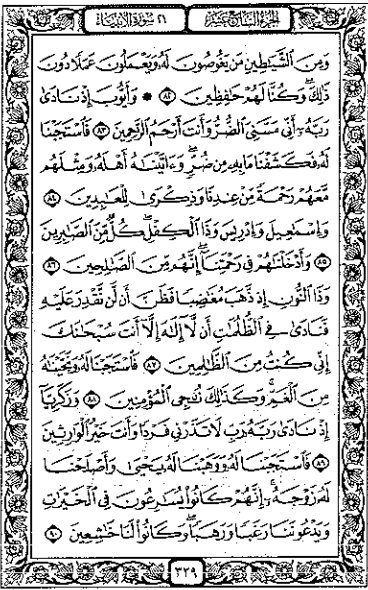 الجزء السابع عشر
٢١ سورة الأنبياء
وَمِنَ الشَّيَٰطِينِ مَن يَغُوصُونَ لَهُۥ وَيَعْمَلُونَ عَمَلًا دُونَ
ذَٰلِكَ ۖ وَكُنَّا لَهُمْ حَٰفِظِينَ ٨٢ ۞ وَأَيُّوبَ إِذْ نَادَىٰ
رَبَّهُۥٓ أَنِّي مَسَّنِيَ الضُّرُّ وَأَنتَ أَرْحَمُ الرَّٰحِمِينَ ٨٣ فَاسْتَجَبْنَا
لَهُۥ فَكَشَفْنَا مَا بِهِۦ مِن ضُرٍّ ۖ وَءَاتَيْنَٰهُ أَهْلَهُۥ وَمِثْلَهُم
مَّعَهُمْ رَحْمَةً مِّنْ عِندِنَا وَذِكْرَىٰ لِلْعَٰبِدِينَ ٨٤
وَإِسْمَٰعِيلَ وَإِدْرِيسَ وَذَا الْكِفْلِ ۖ كُلٌّ مِّنَ الصَّٰبِرِينَ
٨٥ وَأَدْخَلْنَٰهُمْ فِي رَحْمَتِنَآ ۖ إِنَّهُم مِّنَ الصَّٰلِحِينَ ٨٦
وَذَا النُّونِ إِذ ذَّهَبَ مُغَٰضِبًا فَظَنَّ أَن لَّن نَّقْدِرَ عَلَيْهِ
فَنَادَىٰ فِي الظُّلُمَٰتِ أَن لَّآ إِلَٰهَ إِلَّآ أَنتَ سُبْحَٰنَكَ
إِنِّي كُنتُ مِنَ الظَّٰلِمِينَ ٨٧ فَاسْتَجَبْنَا لَهُۥ وَنَجَّيْنَٰهُ
مِنَ الْغَمِّ ۚ وَكَذَٰلِكَ نُۨجِي الْمُؤْمِنِينَ ٨٨ وَزَكَرِيَّآ
إِذْ نَادَىٰ رَبَّهُۥ رَبِّ لَا تَذَرْنِي فَرْدًا وَأَنتَ خَيْرُ الْوَٰرِثِينَ
٨٩ فَاسْتَجَبْنَا لَهُۥ وَوَهَبْنَا لَهُۥ يَحْيَىٰ وَأَصْلَحْنَا
لَهُۥ زَوْجَهُۥٓ ۚ إِنَّهُمْ كَانُوا۟ يُسَٰرِعُونَ فِي الْخَيْرَٰتِ
وَيَدْعُونَنَا رَغَبًا وَرَهَبًا ۖ وَكَانُوا۟ لَنَا خَٰشِعِينَ ٩٠
٣٢٩